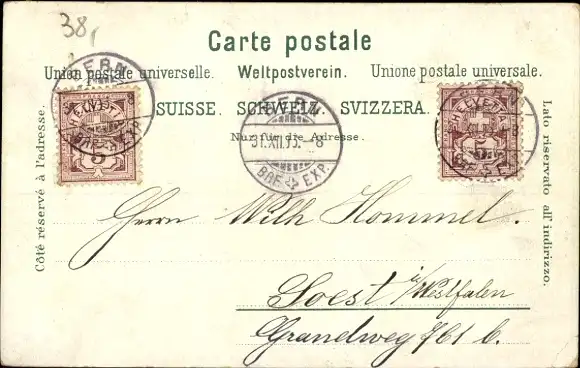 38,
Carte postale
Union postale universelle. Weltpostverein. Unione postale universale.
SUISSE. SCHWEIZ. SVIZZERA.
Nur für die Adresse.
Côté réservé à l'adresse.
Lato riservato all' indirizzo.
BERN
HELVETIA
5
BRF EXP.
BERN
31.XII.99.-8
BRF. EXP.
BERN
HELVETIA
5
Herrn Wilh Hommel.
Soest i/Westfalen
Grandweg 761 b.